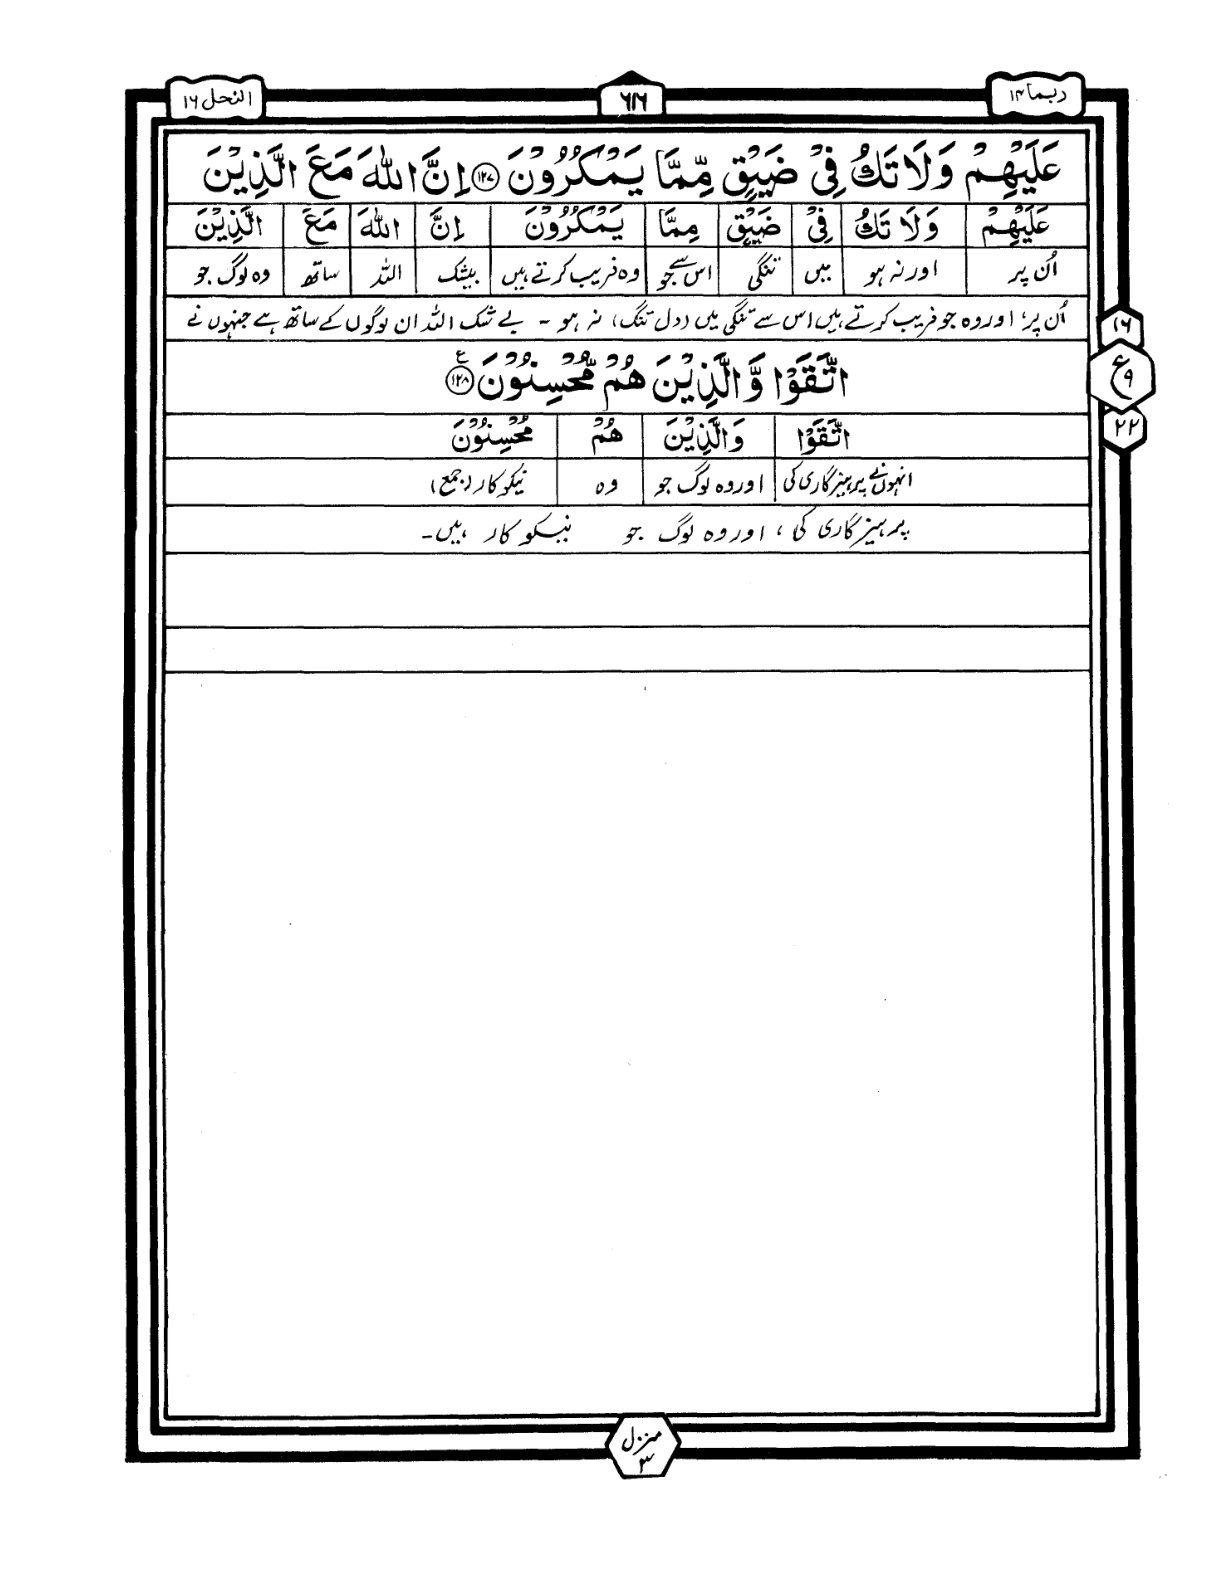 ربما ۱۴
۶۱۶
النحل ۱۶
عَلَيْهِمْ وَلَا تَكُ فِيْ ضَيْقٍ مِّمَّا يَمْكُرُوْنَ ۱۲۷ اِنَّ اللّٰهَ مَعَ الَّذِيْنَ
عَلَيْهِمْ وَلَا تَكُ فِيْ ضَيْقٍ مِمَّا يَمْكُرُوْنَ اِنَّ اللّٰهَ مَعَ الَّذِيْنَ
اُن پر اور نہ ہو میں تنگی اس سے جو وہ فریب کرتے ہیں بیشک اللہ ساتھ وہ لوگ جو
اُن پر، اور وہ جو فریب کرتے ہیں اس سے تنگی میں (دل تنگ) نہ ہو - بے شک اللہ ان لوگوں کے ساتھ ہے جنہوں نے
۱۶
اتَّقَوْا وَّالَّذِيْنَ هُمْ مُّحْسِنُوْنَ ۱۲۸ ع
ع ۹
۲۲
اتَّقَوْا وَالَّذِيْنَ هُمْ مُحْسِنُوْنَ
انہوں نے پرہیزگاری کی اور وہ لوگ جو وہ نیکو کار (جمع)
پرہیزگاری کی، اور وہ لوگ جو نیکو کار ہیں۔
منزل
۳